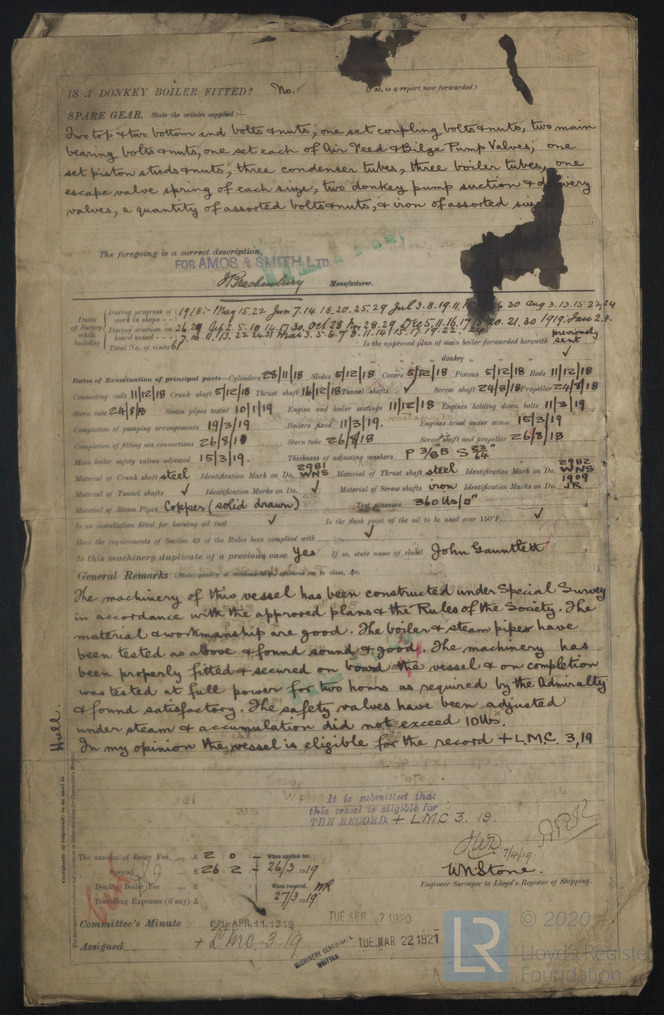 IS A DONKEY BOILER FITTED? No. If so, is a report now forwarded?
SPARE GEAR. State the articles supplied :—
Two top & two bottom end bolts & nuts, one set coupling bolts & nuts, two main
bearing bolts & nuts, one set each of Air Feed & Bilge Pump Valves, one
set piston studs & nuts, three condenser tubes, three boiler tubes, one
escape valve spring of each size, two donkey pump suction &
valves, a quantity of assorted bolts & nuts, & iron of assorted
The foregoing is a correct description,
FOR AMOS & SMITH LTD.
Manufacturer.
Dates of Survey while building
During progress of work in shops - - 1918:- May 15.22 Jun 7.14.18.20.25.29 Jul 3.8.19. 30 Aug 3.13.15.22.24
During erection on board vessel - - - 1919
Total No. of visits 61 Is the approved plan of main boiler forwarded herewith previously sent
" " " donkey " " "
Dates of Examination of principal parts—Cylinders 28/11/18 Slides 5/12/18 Covers 5/12/18 Pistons 5/12/18 Rods 11/12/18
Connecting rods 11/12/18 Crank shaft 5/12/18 Thrust shaft 16/12/18 Tunnel shafts ✓ Screw shaft 24/8/18 Propeller 24/8/18
Stern tube 24/8/18 Steam pipes tested 10/1/19 Engine and boiler seatings 11/12/18 Engines holding down bolts 11/3/19
Completion of pumping arrangements 19/3/19 Boilers fixed 11/3/19. Engines tried under steam 15/3/19
Completion of fitting sea connections 26/8/18 Stern tube 26/8/18 Screw shaft and propeller 26/8/18
Main boiler safety valves adjusted 15/3/19. Thickness of adjusting washers P 3/8" B S 23/64"
Material of Crank shaft steel Identification Mark on Do. 2981 WNS Material of Thrust shaft steel Identification Mark on Do. 2982 WNS
Material of Tunnel shafts ✓ Identification Marks on Do. ✓ Material of Screw shafts iron Identification Marks on Do. 1909 JR
Material of Steam Pipes Copper (solid drawn) Test pressure 360 lbs/□"
Is an installation fitted for burning oil fuel ✓ Is the flash point of the oil to be used over 150°F. ✓
Have the requirements of Section 49 of the Rules been complied with ✓
Is this machinery duplicate of a previous case Yes If so, state name of vessel John Gauntlett
General Remarks (State quality of workmanship, opinions as to class, &c.
The machinery of this vessel has been constructed under Special Survey
in accordance with the approved plans & the Rules of the Society. The
material & workmanship are good. The boiler & steam pipes have
been tested as above & found sound & good. The machinery has
been properly fitted & secured on board the vessel & on completion
was tested at full power for two hours as required by the Admiralty
& found satisfactory. The safety valves have been adjusted
under steam & accumulation did not exceed 10 lbs.
In my opinion the vessel is eligible for the record + L.M.C. 3,19
Hull.
It is submitted that
this vessel is eligible for
THE RECORD. + LMC 3. 19.
7/4/19
The amount of Entry Fee £ 2. 0. When applied for,
Special £ 26. 2. 26/3 1919
Donkey Boiler Fee £ When received,
Travelling Expenses (if any) £ 27/3 1919
WN Stone.
Engineer Surveyor to Lloyd's Register of Shipping.
Committee's Minute FRI. APR. 11. 1919 TUE. SEP. 7 1920
Assigned + LMC 3.19 TUE. MAR. 22 1921
MACHINERY CERTIFICATE
WRITTEN
LR © 2020
Lloyd's Register
Foundation